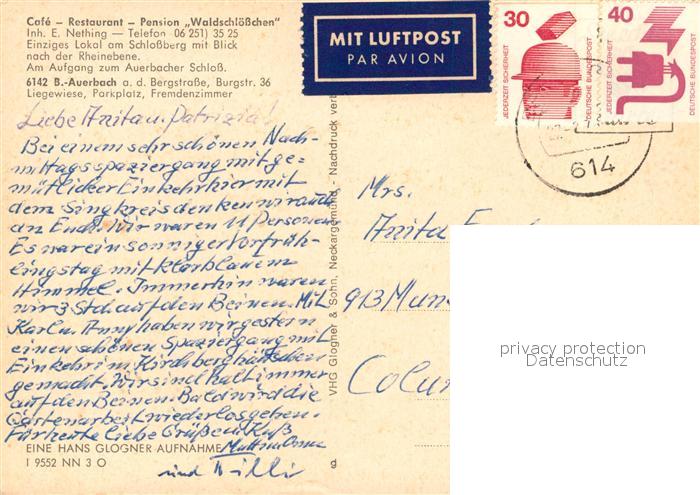 Café – Restaurant – Pension „Waldschlößchen"
Inh. E. Nething – Telefon 06 251) 35 25
Einziges Lokal am Schloßberg mit Blick
nach der Rheinebene.
Am Aufgang zum Auerbacher Schloß.
6142 B.-Auerbach a. d. Bergstraße, Burgstr. 36
Liegewiese, Parkplatz, Fremdenzimmer
Liebe Anita u. Patrizia!
Bei einem sehr schönen Nach-
mittagsspaziergang mit ge-
mütlicher Einkehr hier mit
dem Singkreis denken wir auch
an Euch. Wir waren 11 Personen
Es war ein sonniger Vorfrüh-
lingstag mit klarblauem
Himmel. Immerhin waren
wir 3 Std. auf den Beinen. Mit
Karl u. Anny haben wir gestern
einen schönen Spaziergang mit
Einkehr im Kirchberghäuschen
gemacht. Wir sind halt immer
auf den Beinen. Bald wird die
Gartenarbeit wieder losgehen.
Für heute liebe Grüße u. Kuß
und Willi
EINE HANS GLOGNER-AUFNAHME
I 9552 NN 3 O
g
VHG Glogner & Sohn, Neckargemünd - Nachdruck verb
MIT LUFTPOST
PAR AVION
30
JEDERZEIT SICHERHEIT
DEUTSCHE BUNDESPOST
40
JEDERZEIT SICHERHEIT
DEUTSCHE BUNDESPOST
614
Mrs.
Anita
913
Colu
privacy protection
Datenschutz